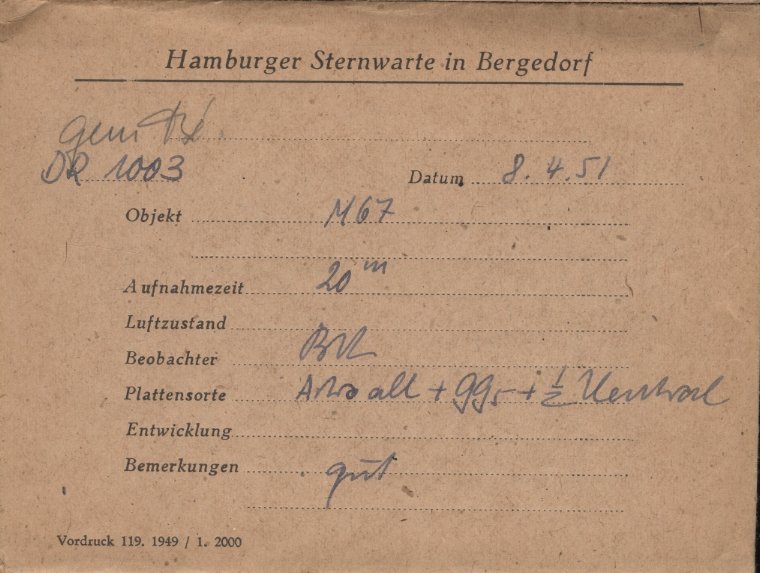 Hamburger Sternwarte in Bergedorf
DR 1003
Datum 8. 4. 51
Objekt M67
Aufnahmezeit 20 m
Luftzustand
Beobachter
Plattensorte alt + GG5 + ½ Neutral
Entwicklung
Bemerkungen gut
Vordruck 119. 1949 / 1. 2000